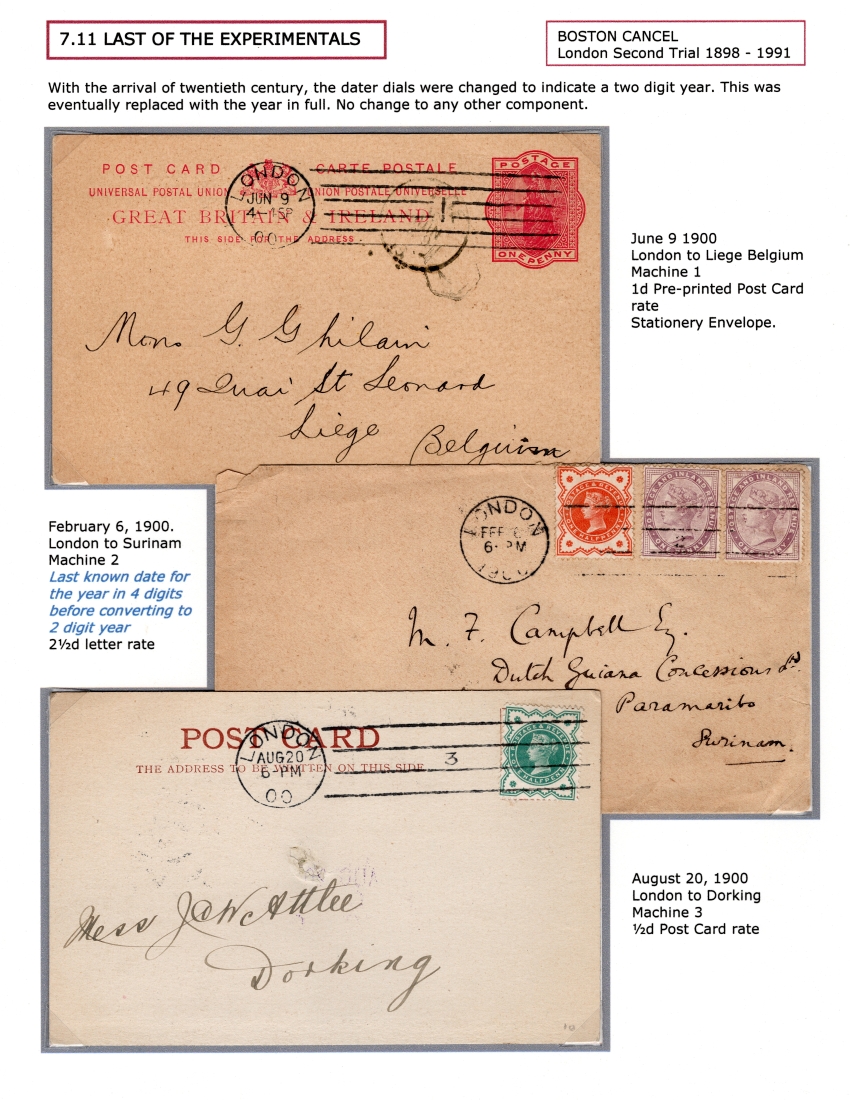 7.11 LAST OF THE EXPERIMENTALS
BOSTON CANCEL
London Second Trial 1898 - 1991
With the arrival of twentieth century, the dater dials were changed to indicate a two digit year. This was
eventually replaced with the year in full. No change to any other component.
POST CARD CARTE POSTALE
UNIVERSAL POSTAL UNION UNION POSTALE UNIVERSELLE
GREAT BRITAIN & IRELAND
THIS SIDE FOR THE ADDRESS
LONDON
JUN 9
00
POSTAGE
ONE PENNY
Mons G. Ghilain
49 Quai St Leonard
Liège
Belguim
June 9 1900
London to Liege Belgium
Machine 1
1d Pre-printed Post Card
rate
Stationery Envelope.
LONDON
FEB 6
6- PM
1900
POSTAGE & REVENUE
ONE HALFPENNY
POSTAGE AND INLAND REVENUE
POSTAGE AND INLAND REVENUE
2
M. F. Campbell Esq.
Dutch Guiana Concessions Ld
Paramaribo
Surinam.
February 6, 1900.
London to Surinam
Machine 2
Last known date for
the year in 4 digits
before converting to
2 digit year
2½d letter rate
POST CARD
THE ADDRESS TO BE WRITTEN ON THIS SIDE
LONDON
AUG 20
6- PM
00
3
POSTAGE & REVENUE
ONE HALFPENNY
Mess J & W Attlee
Dorking
10
August 20, 1900
London to Dorking
Machine 3
½d Post Card rate